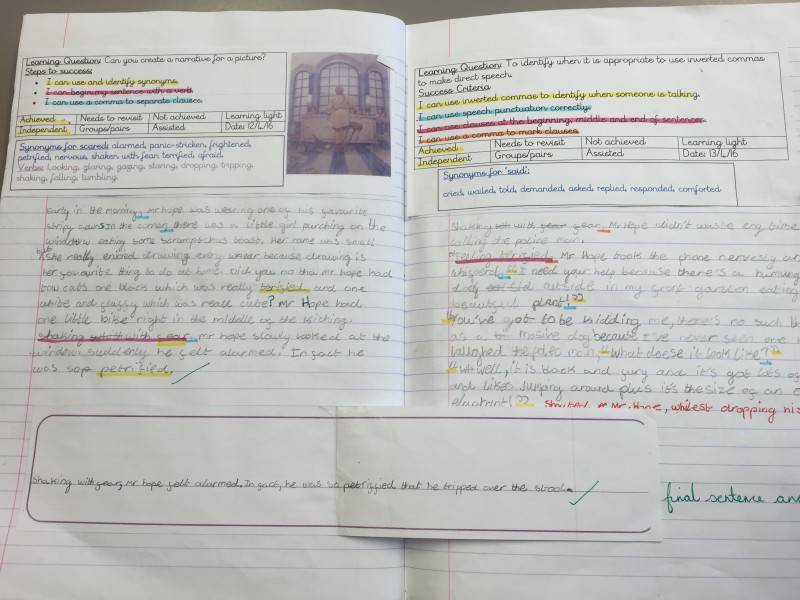 Learning Question: Can you create a narrative for a picture?
Steps to success:
I can use and identify synonyms.
I can begin my sentence with a verb.
I can use a comma to separate clauses.
Achieved Needs to revisit Not achieved Learning light
Independent Groups/pairs Assisted Date: 12/4/16
Synonyms for scared: alarmed, panic-stricken, frightened,
petrified, nervous, shaken with fear, terrified, afraid.
Verbs: Looking, glaring, gazing, staring, dropping, tripping,
shaking, falling, tumbling.
Early in the morning, mr hope was wearing one of his favourite
stripy In the corner, there was a little girl on the
window eating some Her name was small
she really enjoed drawing every because drawing is
her favourite thing to do at home. Did you no that mr hope had
tow cats one black which was really and one
white and which was reall cute? Mr Hope had
one little bike right in the middle of the kitching.
Shaking with fear, mr hope slowly looked at the
window. Suddenly he felt alarmed. In fact he
was so petrified.
Learning Question: To identify when it is appropriate to use inverted commas
to make direct speech.
Success Criteria
I can use inverted commas to identify when someone is talking.
I can use speech punctuation correctly.
I can use clauses at the beginning, middle and end of sentences.
I can use a comma to mark clauses.
Achieved Needs to revisit Not achieved Learning light
Independent Groups/pairs Assisted Date: 13/4/16
Synonyms for 'said':
cried, wailed, told, demanded, asked, replied, responded, comforted
Shaking with fear, Mr Hope didn't waste eny time
calling the police man.
Mr Hope took the phone nervously an
"I need your help because there's a
outside in my front garden eating
beautiful plant!"
"You've got to be kidding me, there's no such th
as a dog because I've never seen one
laughed the man, "What doese it look like?"
"well, it is black and fury and it's got lots of
and likes Jumping around plus it's the size of an e
Mr Hope, whilest dropping his
Shaking with fear, Mr hope felt alarmed. In fact, he was so petriffied that he tripped over the stool.
final sentence an